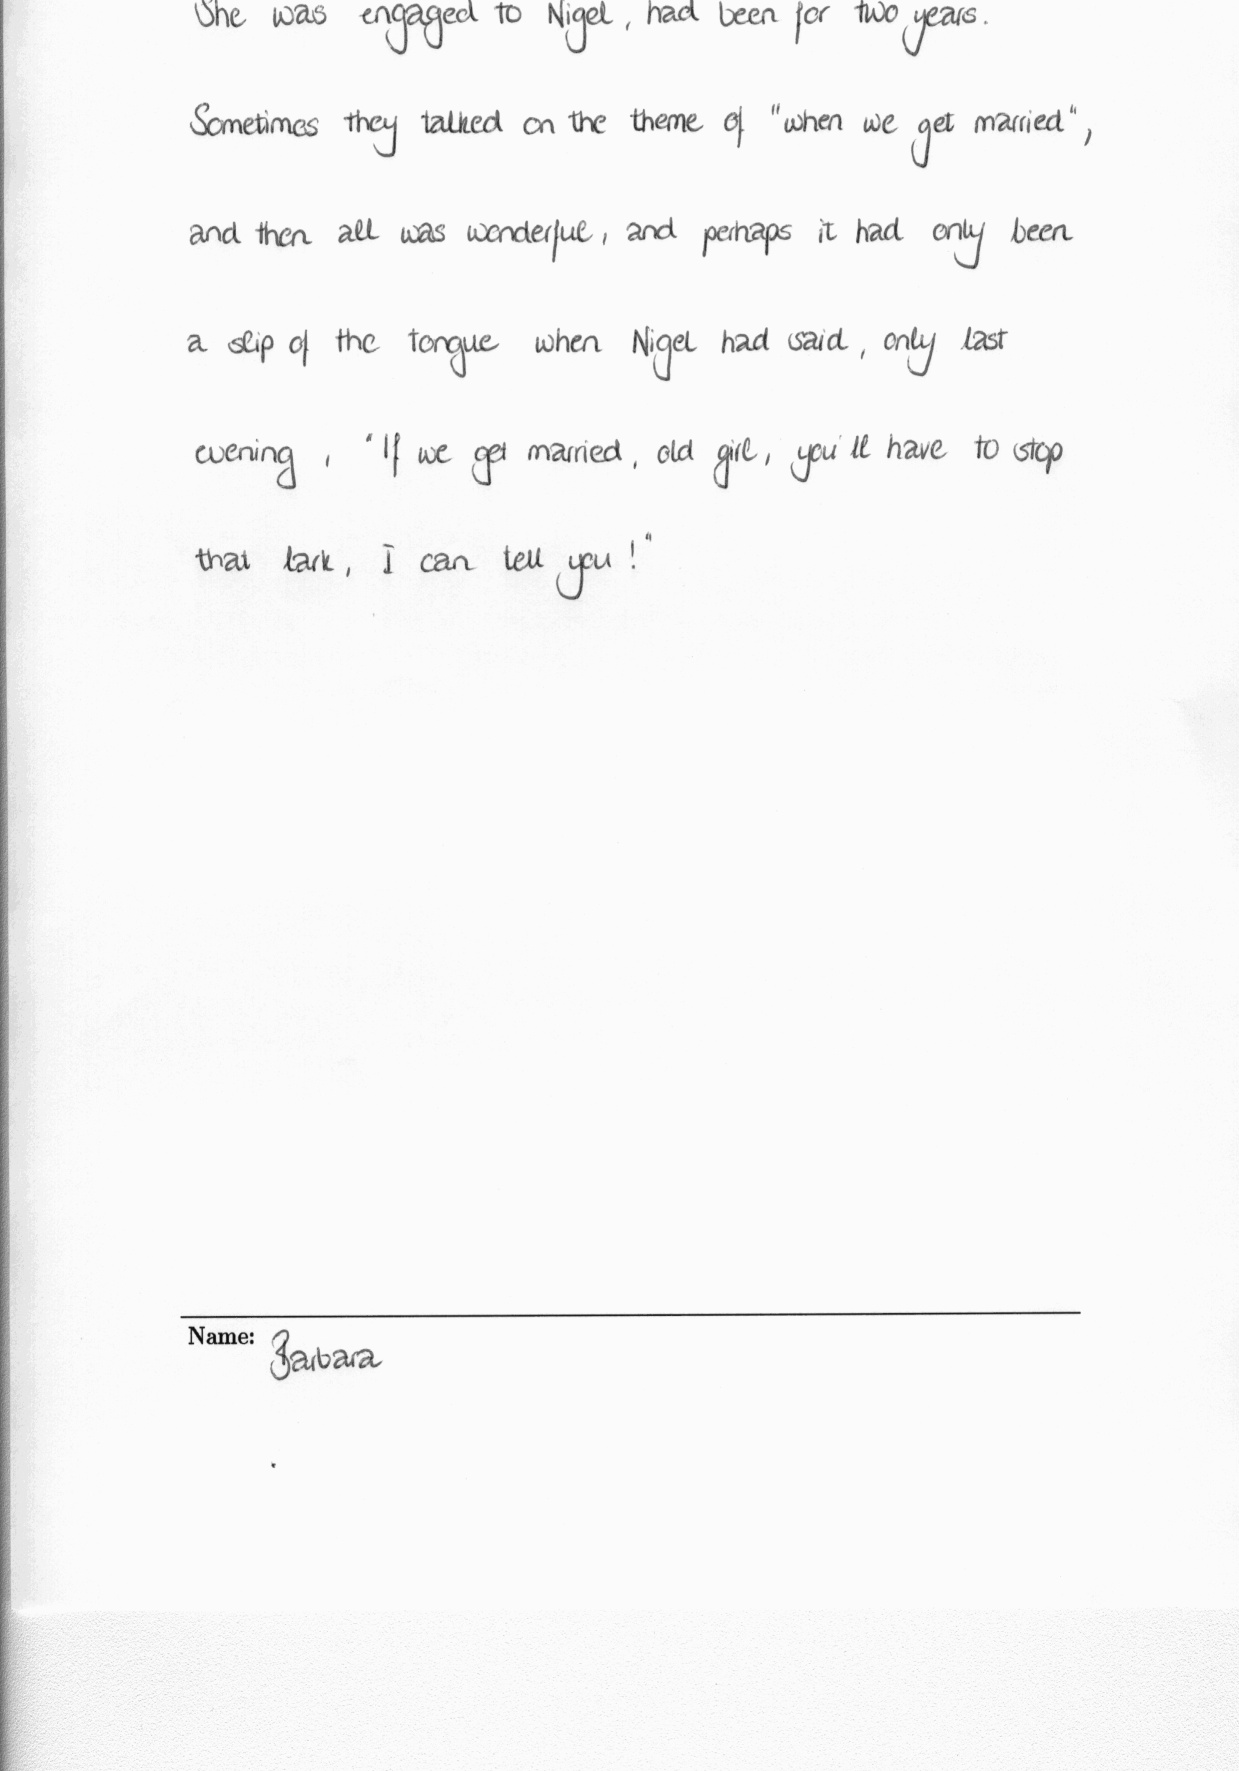 She was engaged to Nigel, had been for two years.
Sometimes they talked on the theme of "when we get married",
and then all was wonderful, and perhaps it had only been
a slip of the tongue when Nigel had said, only last
evening, "If we get married, old girl, you'll have to stop
that lark, I can tell you!"
Name: Barbara